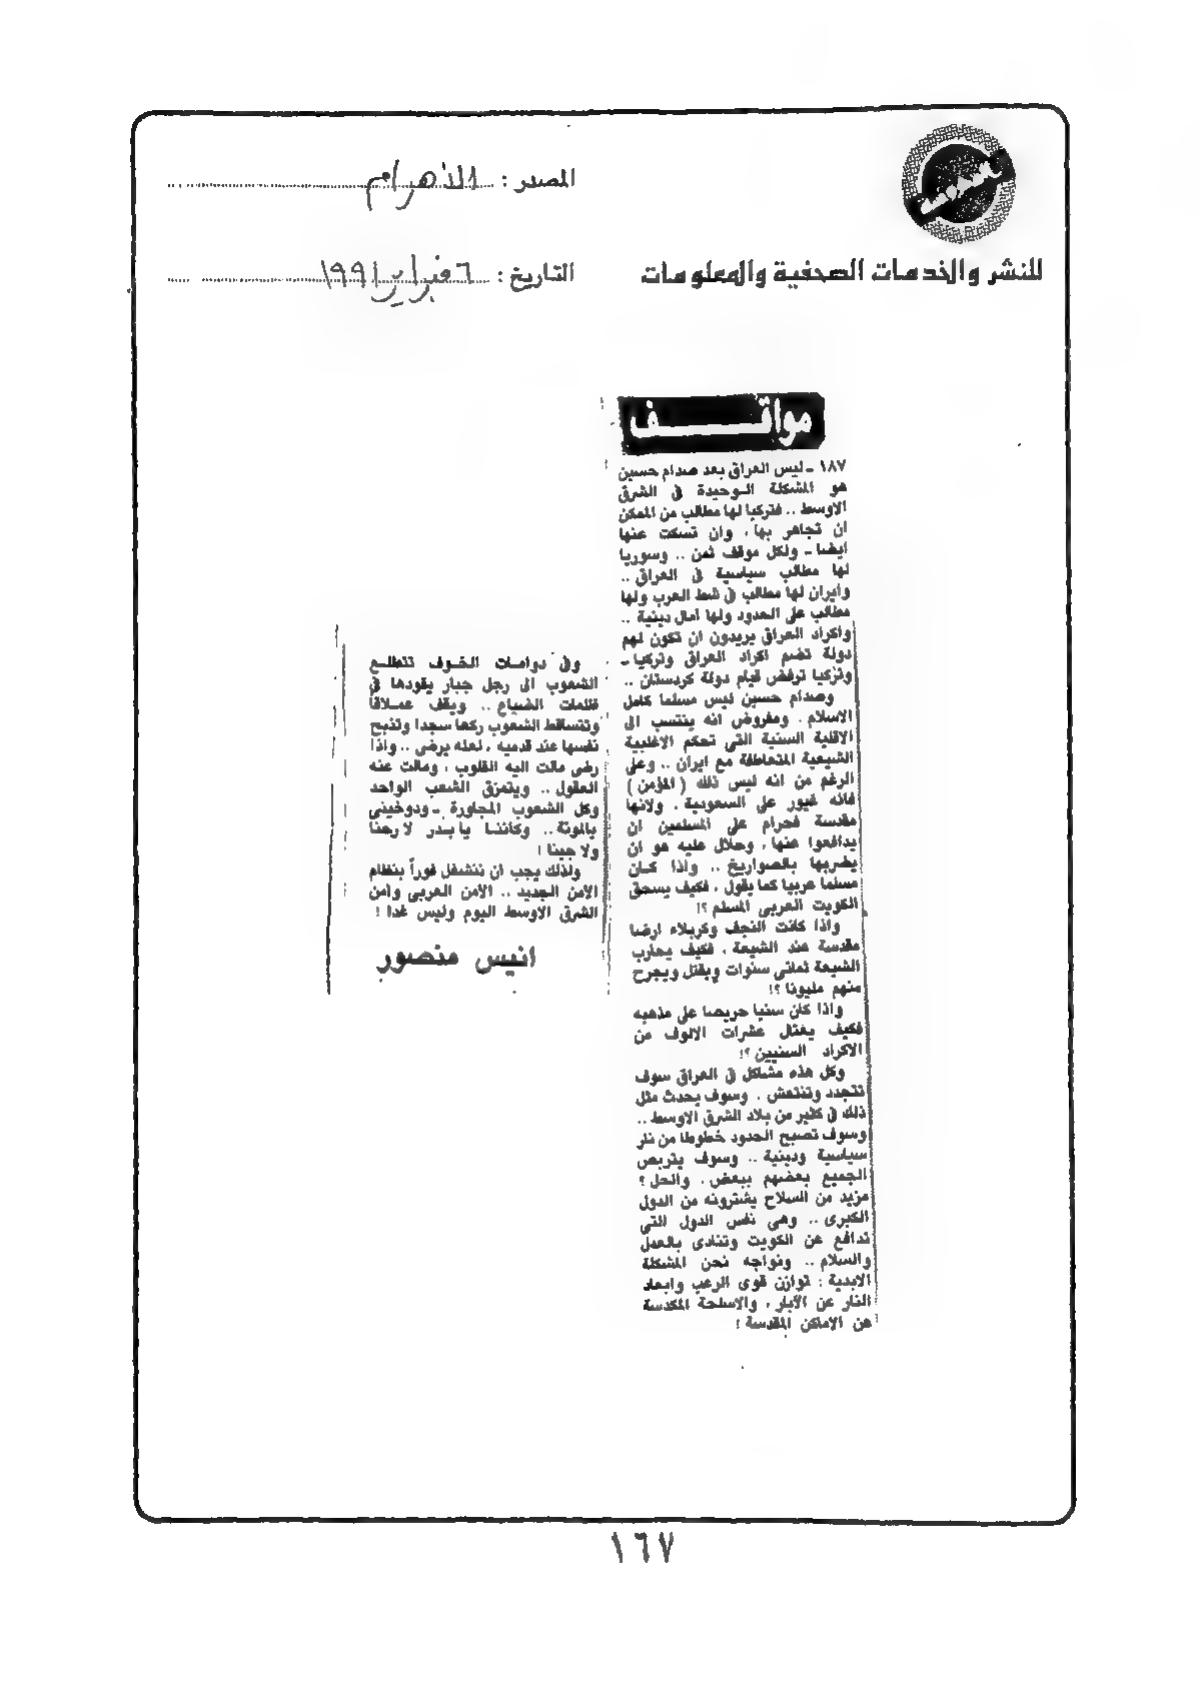 المصدر : الأهرام
للنشر والخدمات الصحفية والمعلومات
التاريخ : ٦ فبراير ١٩٩١
مواقف
١٨٧ ـ ليس العراق بعد صدام حسين
هو المشكلة الوحيدة فى الشرق
الاوسط .. فتركيا لها مطالب من الممكن
ان تجاهر بها ، وان تسكت عنها
ايضا ـ ولكل موقف ثمن .. وسوريا
لها مطالب سياسية فى العراق ..
وايران لها مطالب فى شط العرب ولها
مطالب على الحدود ولها امال دينية ..
واكراد العراق يريدون ان تكون لهم
دولة تضم اكراد العراق وتركيا ـ
وتركيا ترفض قيام دولة كردستان ..
وصدام حسين ليس مسلما كامل
الاسلام . ومفروض انه ينتسب الى
الاقلية السنية التى تحكم الاغلبية
الشيعية المتعاطفة مع ايران .. وعلى
الرغم من انه ليس ذلك ( المؤمن )
فانه غيور على السعودية . ولانها
مقدسة فحرام على المسلمين ان
يدافعوا عنها ، وحلال عليه هو ان
يضربها بالصواريخ .. واذا كان
مسلما عربيا كما يقول ، فكيف يسحق
الكويت العربى المسلم ؟!
واذا كانت النجف وكربلاء ارضا
مقدسة عند الشيعة ، فكيف يحارب
الشيعة ثمانى سنوات ويقتل ويجرح
منهم مليونا ؟!
واذا كان سنيا حريصا على مذهبه
فكيف يغتال عشرات الالوف من
الاكراد السنيين ؟!
وكل هذه مشاكل فى العراق سوف
تتجدد وتنتعش . وسوف يحدث مثل
ذلك فى كثير من بلاد الشرق الاوسط ..
وسوف تصبح الحدود خطوطا من نار
سياسية ودينية .. وسوف يتربص
الجميع بعضهم ببعض . والحل ؟
مزيد من السلاح يشترونه من الدول
الكبرى .. وهى نفس الدول التى
تدافع عن الكويت وتنادى بالعدل
والسلام .. ونواجه نحن المشكلة
الابدية : توازن قوى الرعب وابعاد
النار عن الآبار ، والاسلحة المكدسة
عن الاماكن المقدسة !
وفى دوامات الخوف تتطلع
الشعوب الى رجل جبار يقودها فى
ظلمات الضياع .. ويقف عملاقا
وتتساقط الشعوب ركعا سجدا وتذبح
نفسها عند قدميه ، لعله يرضى .. واذا
رضى مالت اليه القلوب ، ومالت عنه
العقول .. ويتمزق الشعب الواحد
وكل الشعوب المجاورة ـ ودوخينى
يالمونة .. وكأننا يا بدر لا رحنا
ولا جينا !
ولذلك يجب ان ننشغل فوراً بنظام
الامن الجديد .. الامن العربى وأمن
الشرق الاوسط اليوم وليس غدا !
انيس منصور
١٦٧